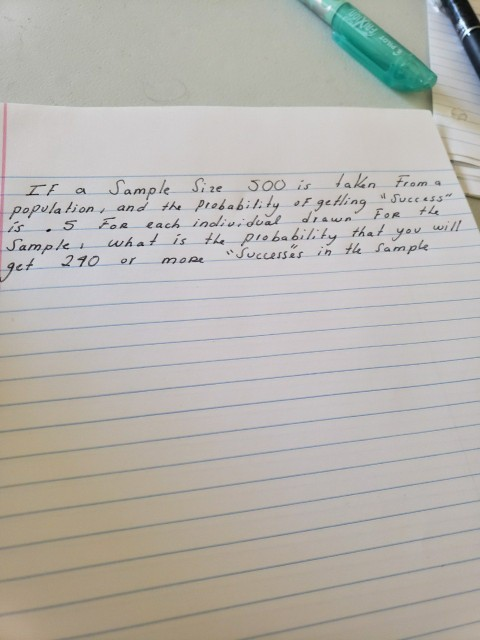 IF a Sample Size 500 is taken From a
population, and the probability of getting "Success"
is .5 For each individual drawn For the
Sample, what is the probability that you will
get 290 or more "Successes in the Sample